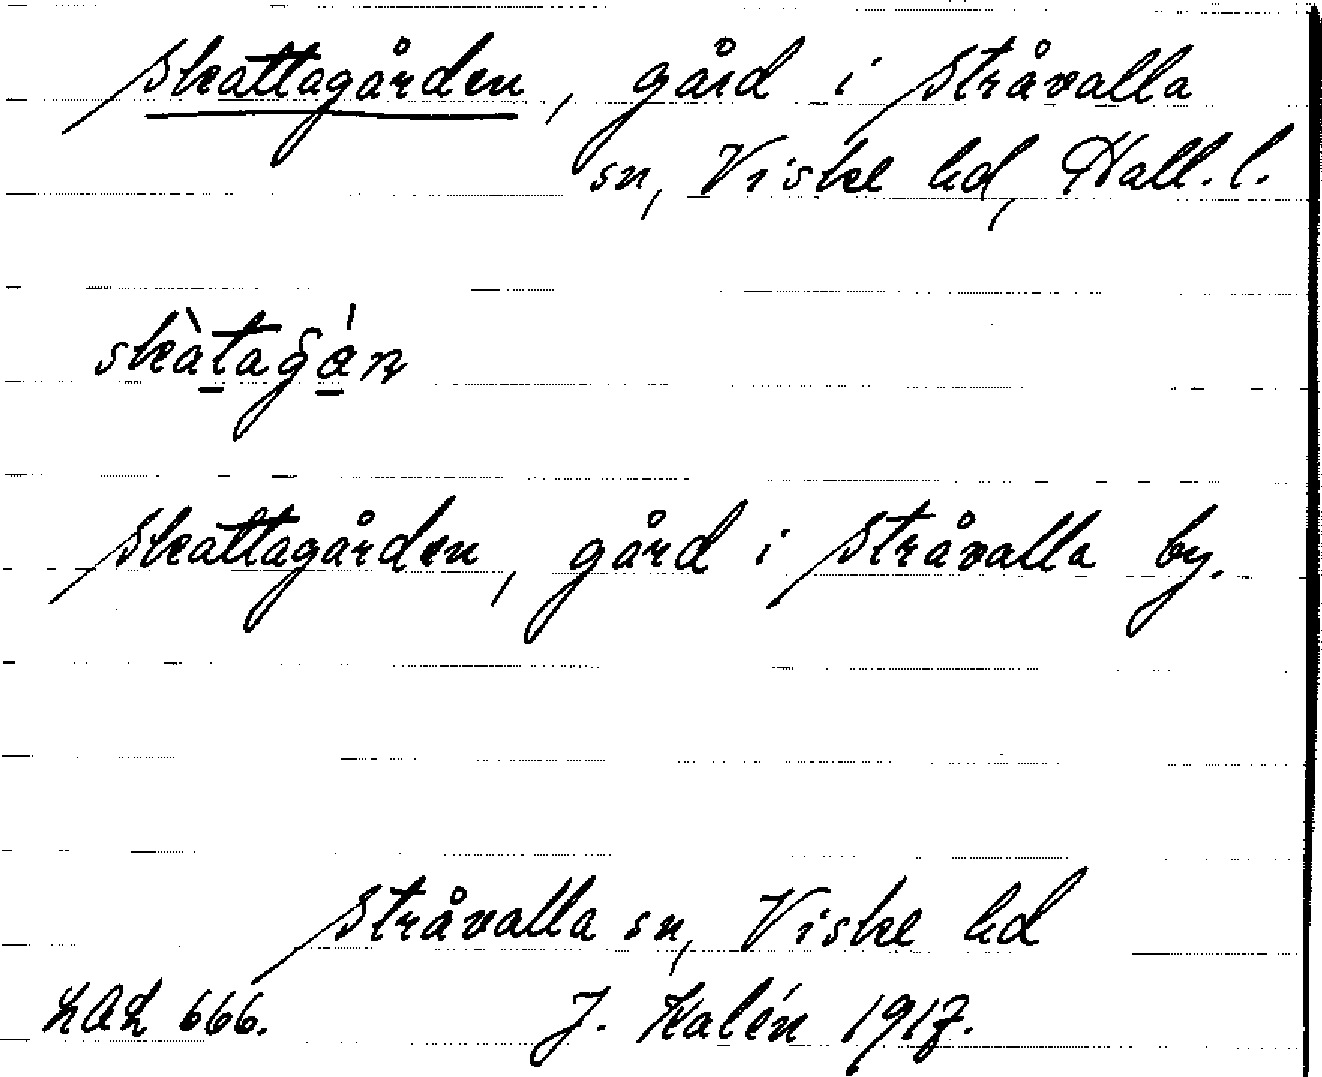 Skattagården, gård i Stråvalla
sn, Viske hd, Hall. l.
skàtagán
Skattagården, gård i Stråvalla by.
Stråvalla sn, Viske hd
LAL 666. J. Kalén 1917.